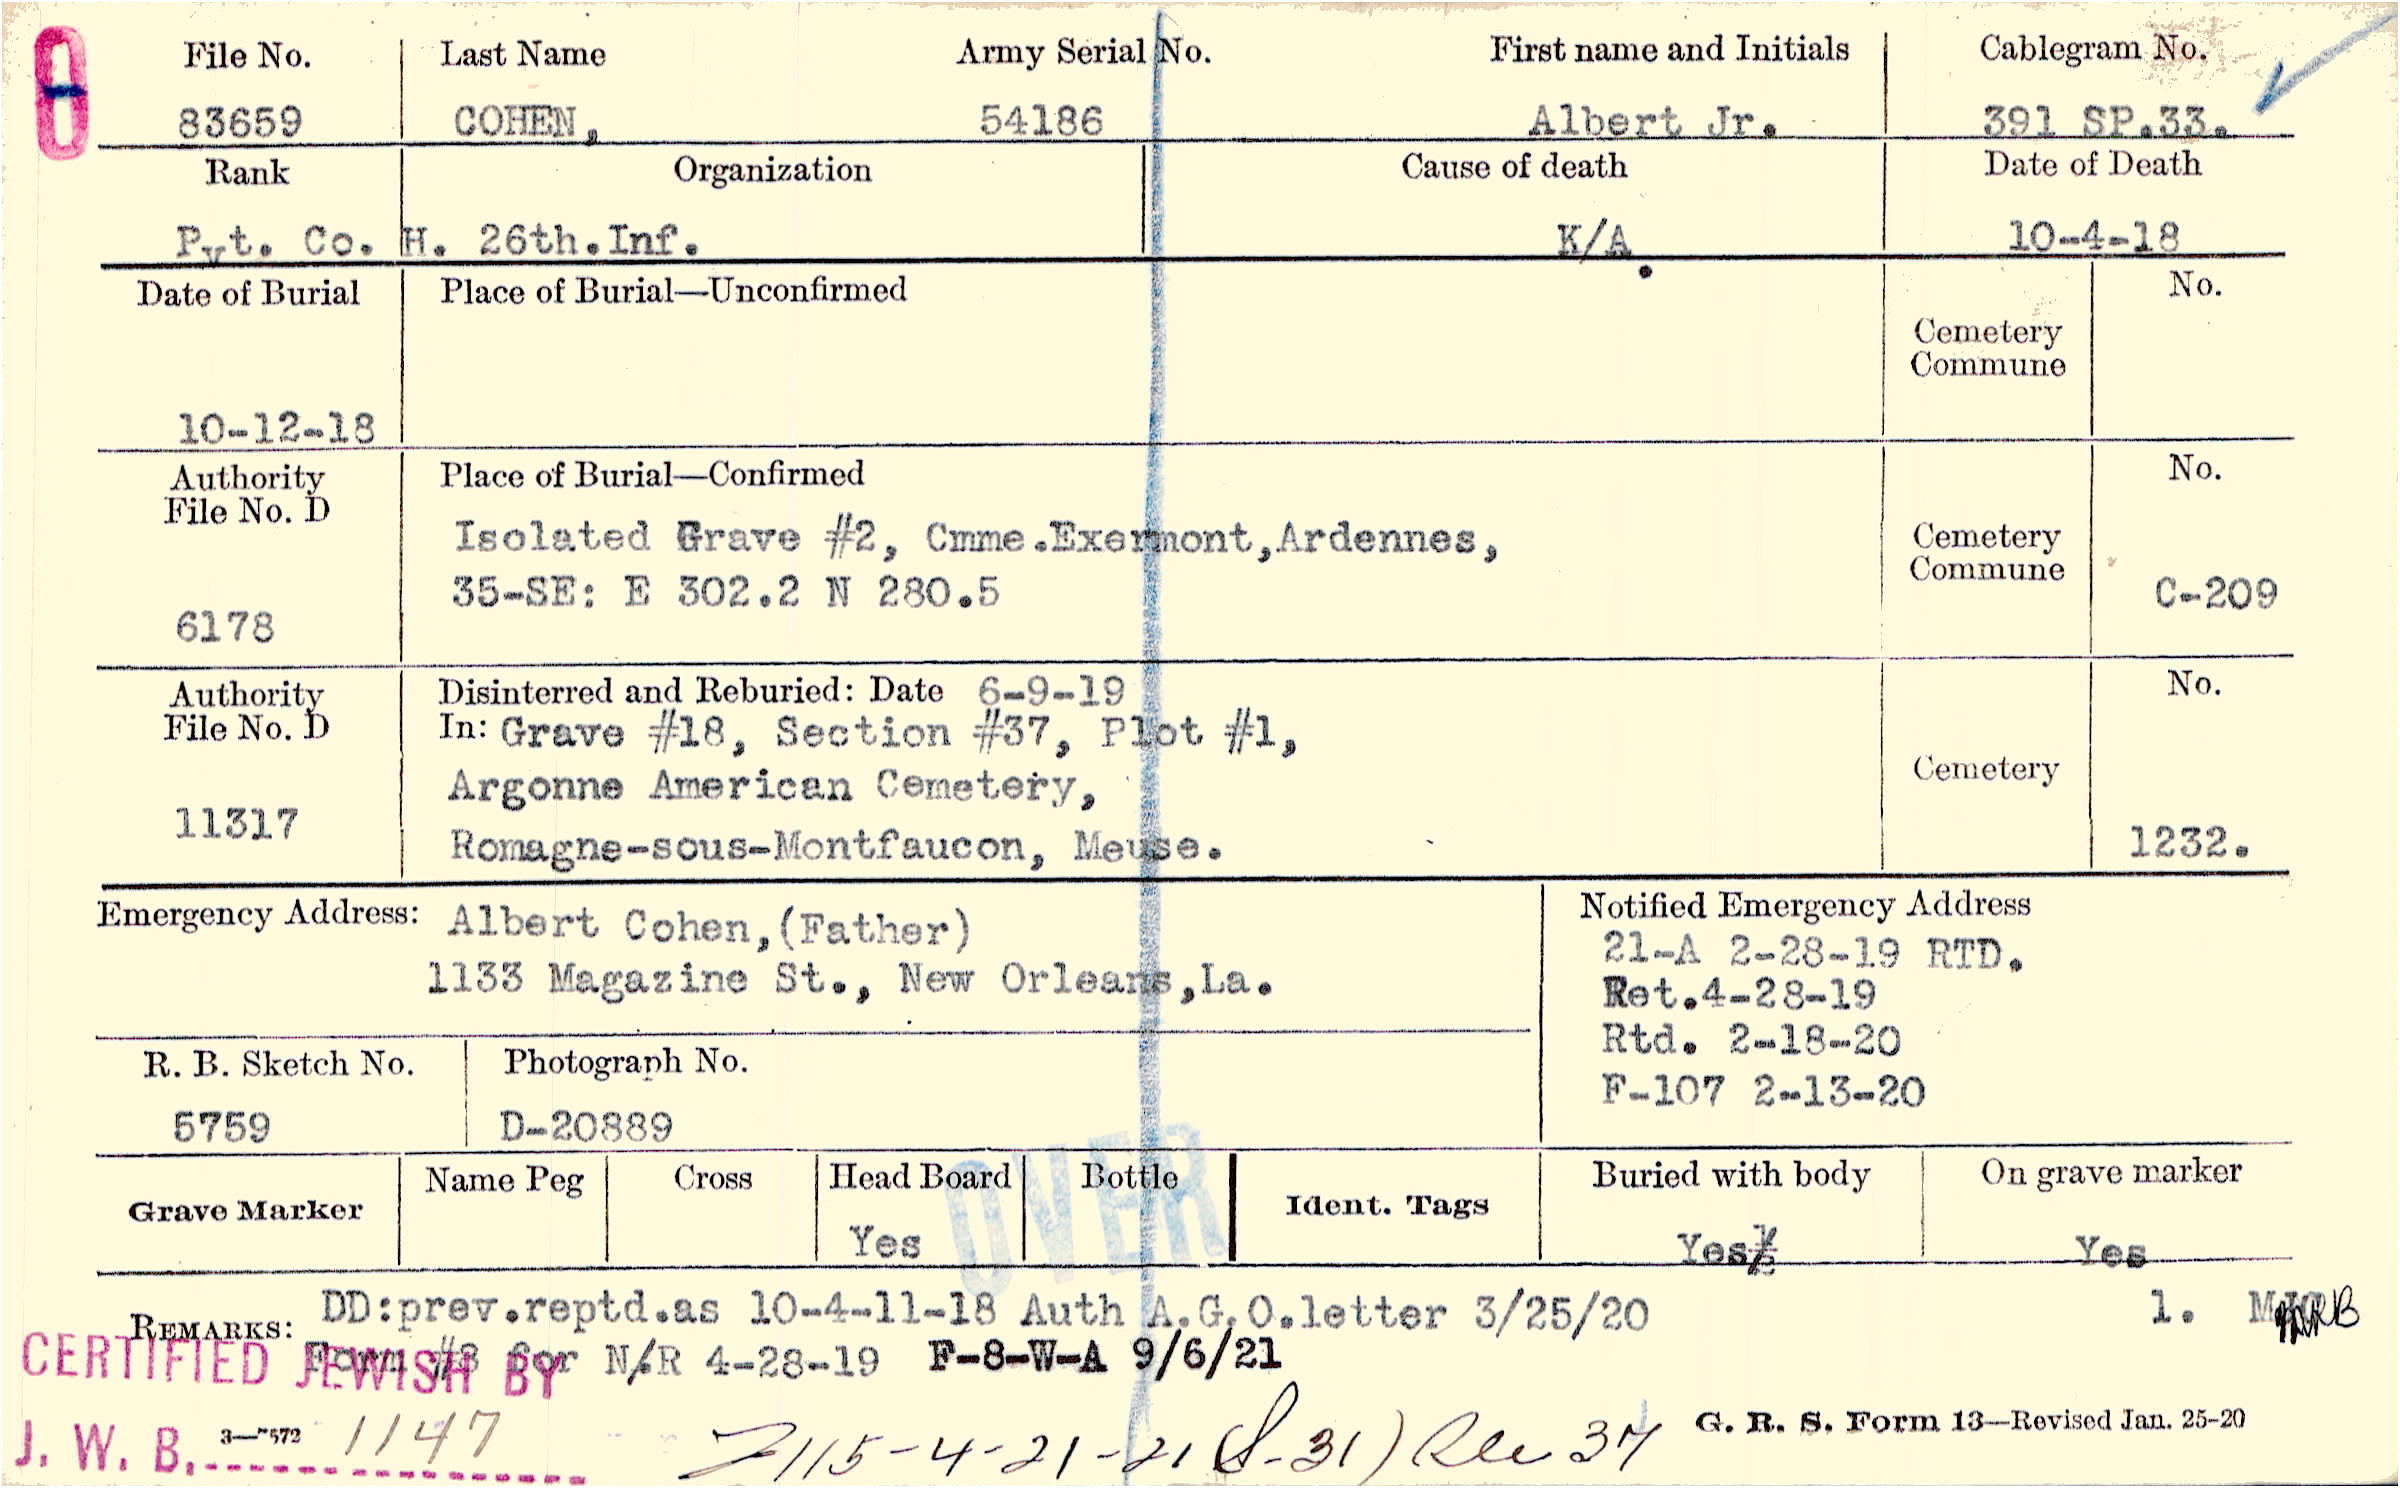 File No. Last Name Army Serial No. First name and Initials Cablegram No.
83659 COHEN, 54186 Albert Jr. 391 SP.33.
Rank Organization Cause of death Date of Death
Pvt. Co. H. 26th.Inf. K/A. 10-4-18
Date of Burial Place of Burial—Unconfirmed No.
Cemetery
Commune
10-12-18
Authority Place of Burial—Confirmed No.
File No. D
Isolated Grave #2, Cmme.Exermont,Ardennes, Cemetery
Commune
35-SE: E 302.2 N 280.5 C-209
6178
Authority Disinterred and Reburied: Date 6-9-19 No.
File No. D In: Grave #18, Section #37, Plot #1,
Argonne American Cemetery, Cemetery
11317
Romagne-sous-Montfaucon, Meuse. 1232.
Emergency Address: Albert Cohen,(Father) Notified Emergency Address
1133 Magazine St., New Orleans,La. 21-A 2-28-19 RTD.
Ret.4-28-19
Rtd. 2-18-20
F-107 2-13-20
R. B. Sketch No. Photograph No.
5759 D-20889
OVER
Grave Marker Name Peg Cross Head Board Bottle Ident. Tags Buried with body On grave marker
Yes Yes Yes
REMARKS: DD:prev.reptd.as 10-4-11-18 Auth A.G.O.letter 3/25/20 1.
Form #8 for N/R 4-28-19 F-8-W-A 9/6/21
CERTIFIED JEWISH BY
J. W. B. 1147
G. R. S. Form 13—Revised Jan. 25-20
115-4-21-21 (S-31) 37